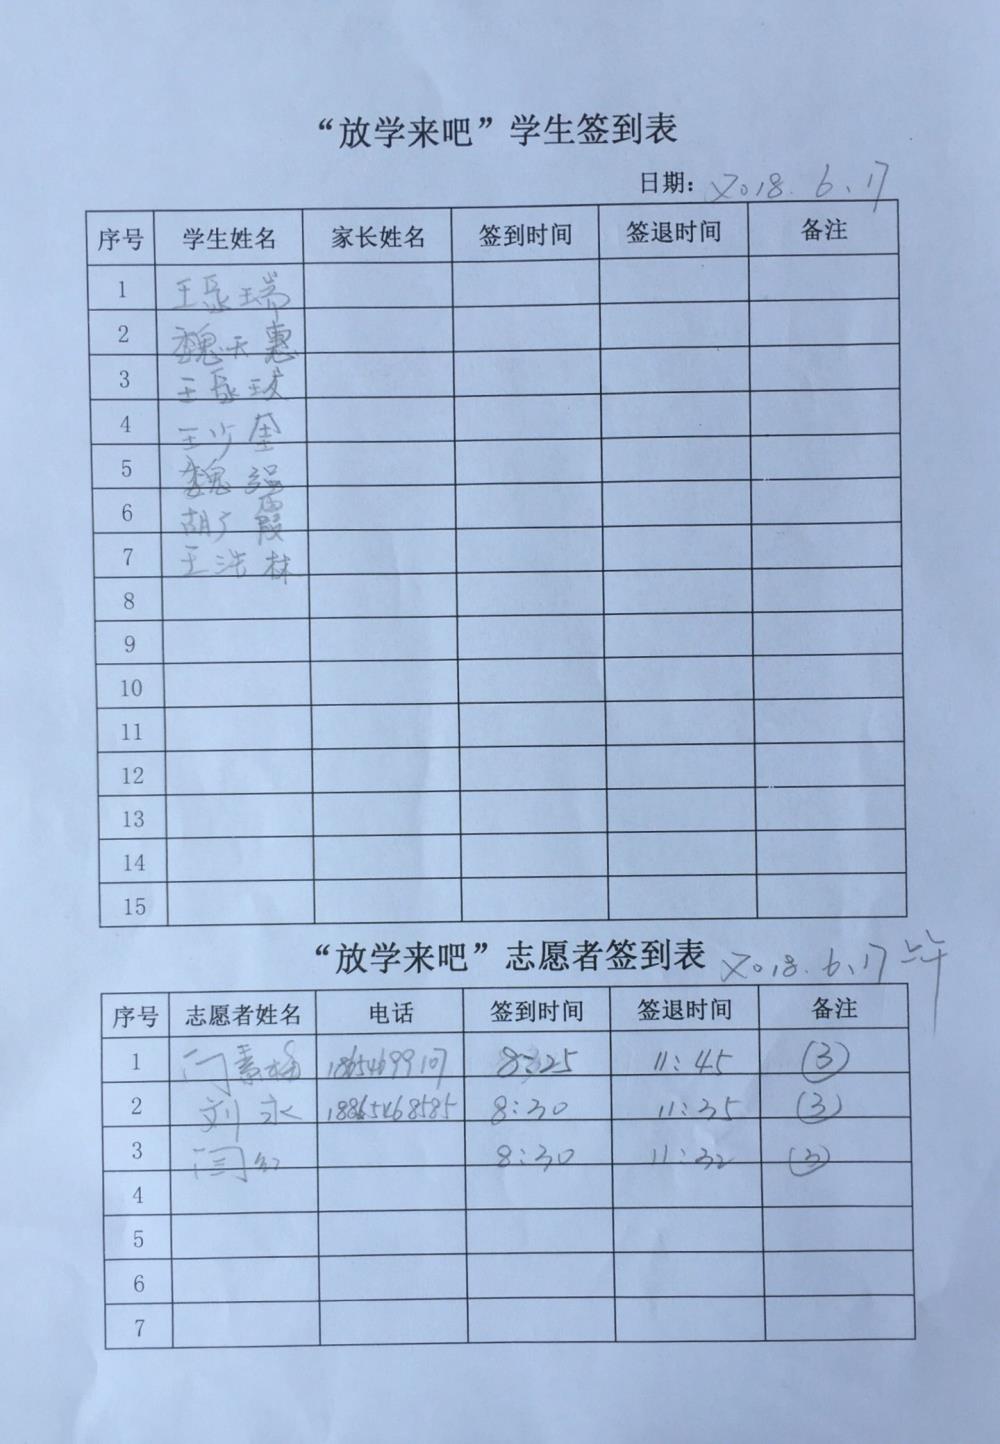 “放学来吧”学生签到表
日期: 2018.6.17
序号 学生姓名 家长姓名 签到时间 签退时间 备注
1 王晟瑞
2 魏天惠
3 王晟玟
4 王少奎
5 魏强
6 胡广霞
7 王浩林
8
9
10
11
12
13
14
15
“放学来吧”志愿者签到表 2018.6.17 上午
序号 志愿者姓名 电话 签到时间 签退时间 备注
1 闫素梅 18654699107 8:25 11:45 (3)
2 刘永 18865468585 8:30 11:35 (3)
3 8:30 11:32 (3)
4
5
6
7